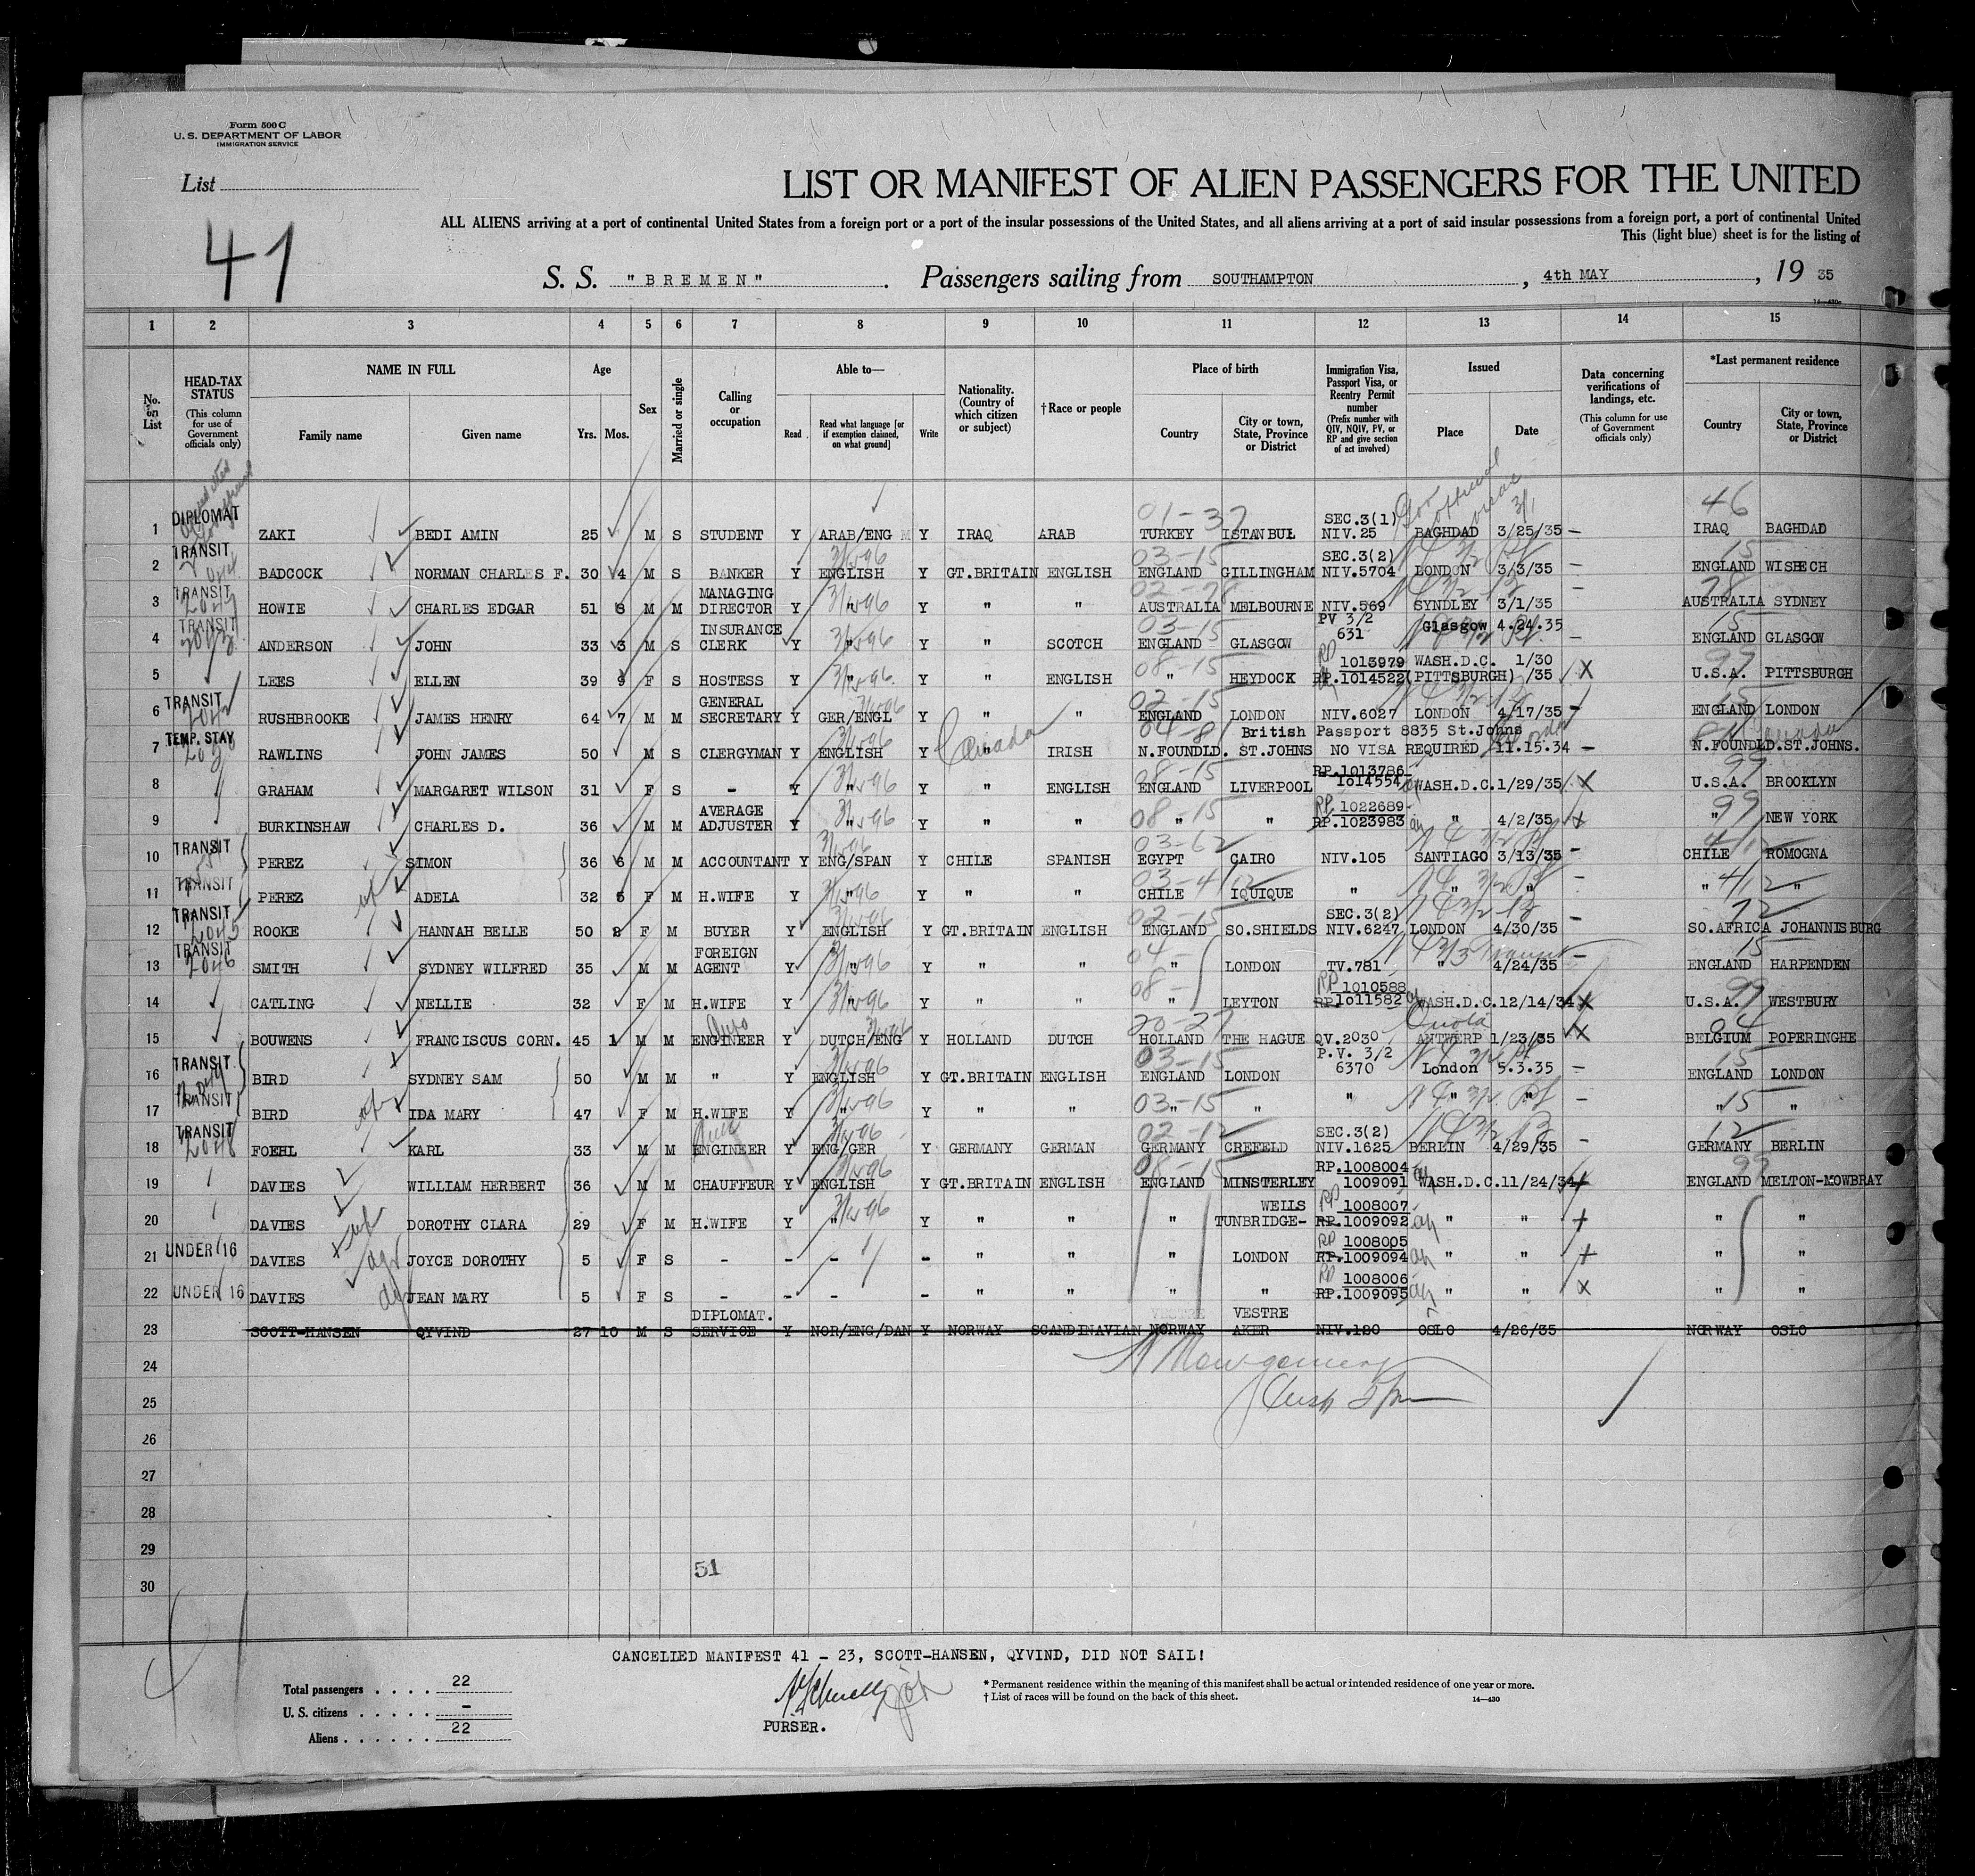 Form 500 C
U. S. DEPARTMENT OF LABOR
IMMIGRATION SERVICE
List
41
LIST OR MANIFEST OF ALIEN PASSENGERS FOR THE UNITED
ALL ALIENS arriving at a port of continental United States from a foreign port or a port of the insular possessions of the United States, and all aliens arriving at a port of said insular possessions from a foreign port, a port of continental United
This (light blue) sheet is for the listing of
S. S. "BREMEN". Passengers sailing from SOUTHAMPTON, 4th MAY, 19 35
14—430c
1 2 3 4 5 6 7 8 9 10 11 12 13 14 15
No. on List
HEAD-TAX STATUS (This column for use of Government officials only)
NAME IN FULL Family name Given name
Age Yrs. Mos.
Sex
Married or single
Calling or occupation
Able to— Read Read what language [or if exemption claimed, on what ground] Write
Nationality. (Country of which citizen or subject)
†Race or people
Place of birth Country City or town, State, Province or District
Immigration Visa, Passport Visa, or Reentry Permit number (Prefix number with QIV, NQIV, PV, or RP and give section of act involved)
Issued Place Date
Data concerning verifications of landings, etc. (This column for use of Government officials only)
*Last permanent residence Country City or town, State, Province or District
01-37 46
1 DIPLOMAT ZAKI BEDI AMIN 25 M S STUDENT Y ARAB/ENG Y IRAQ ARAB TURKEY ISTANBUL SEC.3(1) NIV.25 BAGHDAD 3/25/35 — IRAQ BAGHDAD
03-15 15
2 TRANSIT BADCOCK NORMAN CHARLES F. 30 4 M S BANKER Y ENGLISH Y GT.BRITAIN ENGLISH ENGLAND GILLINGHAM SEC.3(2) NIV.5704 LONDON 3/3/35 — ENGLAND WISHECH
02-78 78
3 TRANSIT HOWIE CHARLES EDGAR 51 8 M M MANAGING DIRECTOR Y " Y " " AUSTRALIA MELBOURNE NIV.569 SYNDLEY 3/1/35 — AUSTRALIA SYDNEY
03-15 15
4 TRANSIT ANDERSON JOHN 33 3 M S INSURANCE CLERK Y " Y " SCOTCH ENGLAND GLASGOW PV 3/2 631 Glasgow 4.24.35 — ENGLAND GLASGOW
08-15 99
5 LEES ELLEN 39 9 F S HOSTESS Y " Y " ENGLISH " HEYDOCK RP 1013979 RP.1014522 WASH.D.C. (PITTSBURGH) 1/30 /35 X U.S.A. PITTSBURGH
02-15 15
6 TRANSIT RUSHBROOKE JAMES HENRY 64 7 M M GENERAL SECRETARY Y GER/ENGL Y " " ENGLAND LONDON NIV.6027 LONDON 4/17/35 — ENGLAND LONDON
04-81 British Passport 8835 St.Johns
7 TEMP. STAY RAWLINS JOHN JAMES 50 M S CLERGYMAN Y ENGLISH Y Canada " IRISH N.FOUNDLD. ST.JOHNS NO VISA REQUIRED 11.15.34 — N.FOUNDLD.ST.JOHNS.
08-15 99
8 GRAHAM MARGARET WILSON 31 F S - Y " Y " ENGLISH ENGLAND LIVERPOOL RP.1013786 1014554 WASH.D.C. 1/29/35 X U.S.A. BROOKLYN
08-15 99
9 BURKINSHAW CHARLES D. 36 M M AVERAGE ADJUSTER Y " Y " " " " RP 1022689 RP.1023983 " 4/2/35 X " NEW YORK
03-62
10 TRANSIT PEREZ SIMON 36 6 M M ACCOUNTANT Y ENG/SPAN Y CHILE SPANISH EGYPT CAIRO NIV.105 SANTIAGO 3/13/35 — CHILE ROMOGNA
03-41
11 TRANSIT PEREZ wf ADELA 32 5 F M H.WIFE Y " Y " " CHILE IQUIQUE " " " — " "
02-15 72
12 TRANSIT 2045 ROOKE HANNAH BELLE 50 2 F M BUYER Y ENGLISH Y GT.BRITAIN ENGLISH ENGLAND SO.SHIELDS SEC.3(2) NIV.6247 LONDON 4/30/35 — SO.AFRICA JOHANNISBURG
04- 15
13 TRANSIT 2046 SMITH SYDNEY WILFRED 35 M M FOREIGN AGENT Y " Y " " " LONDON TV.781 " 4/24/35 — ENGLAND HARPENDEN
08- 99
14 CATLING NELLIE 32 F M H.WIFE Y " Y " " " LEYTON RP 1010588 RP.1011582 WASH.D.C. 12/14/34 X U.S.A. WESTBURY
20-27 Quota 04
15 BOUWENS FRANCISCUS CORN. 45 1 M M ENGINEER Y DUTCH/ENG Y HOLLAND DUTCH HOLLAND THE HAGUE QV.2030 ANTWERP 1/23/35 X BELGIUM POPERINGHE
03-15 15
16 TRANSIT BIRD SYDNEY SAM 50 M M " Y ENGLISH Y GT.BRITAIN ENGLISH ENGLAND LONDON P.V. 3/2 6370 London 5.3.35 — ENGLAND LONDON
03-15 15
17 TRANSIT BIRD wf IDA MARY 47 F M H.WIFE Y " Y " " " " " " " — " "
02-12 12
18 TRANSIT 2048 FOEHL KARL 33 M M ENGINEER Y ENG/GER Y GERMANY GERMAN GERMANY CREFELD SEC.3(2) NIV.1625 BERLIN 4/29/35 — GERMANY BERLIN
08-15 99
19 DAVIES WILLIAM HERBERT 36 M M CHAUFFEUR Y ENGLISH Y GT.BRITAIN ENGLISH ENGLAND MINSTERLEY RP.1008004 1009091 WASH.D.C. 11/24/34 ENGLAND MELTON-MOWBRAY
20 DAVIES wf DOROTHY CLARA 29 F M H.WIFE Y " Y " " " WELLS TUNBRIDGE- RP 1008007 RP.1009092 " " " "
21 UNDER 16 DAVIES JOYCE DOROTHY 5 F S - - - - " " " LONDON RP 1008005 RP.1009094 " " " "
22 UNDER 16 DAVIES JEAN MARY 5 F S - - - - " " " " RP 1008006 RP.1009095 " " X " "
23 SCOTT-HANSEN QYVIND 27 10 M S DIPLOMAT. SERVICE Y NOR/ENG/DAN Y NORWAY SCANDINAVIAN NORWAY VESTRE AKER NIV.120 OSLO 4/26/35 NORWAY OSLO
24
25
26
27
28
29
51
30
CANCELLED MANIFEST 41 - 23, SCOTT-HANSEN, QYVIND, DID NOT SAIL!
Total passengers . . . . 22
U. S. citizens . . . . . -
Aliens . . . . . . 22
PURSER.
* Permanent residence within the meaning of this manifest shall be actual or intended residence of one year or more.
† List of races will be found on the back of this sheet.
14—430